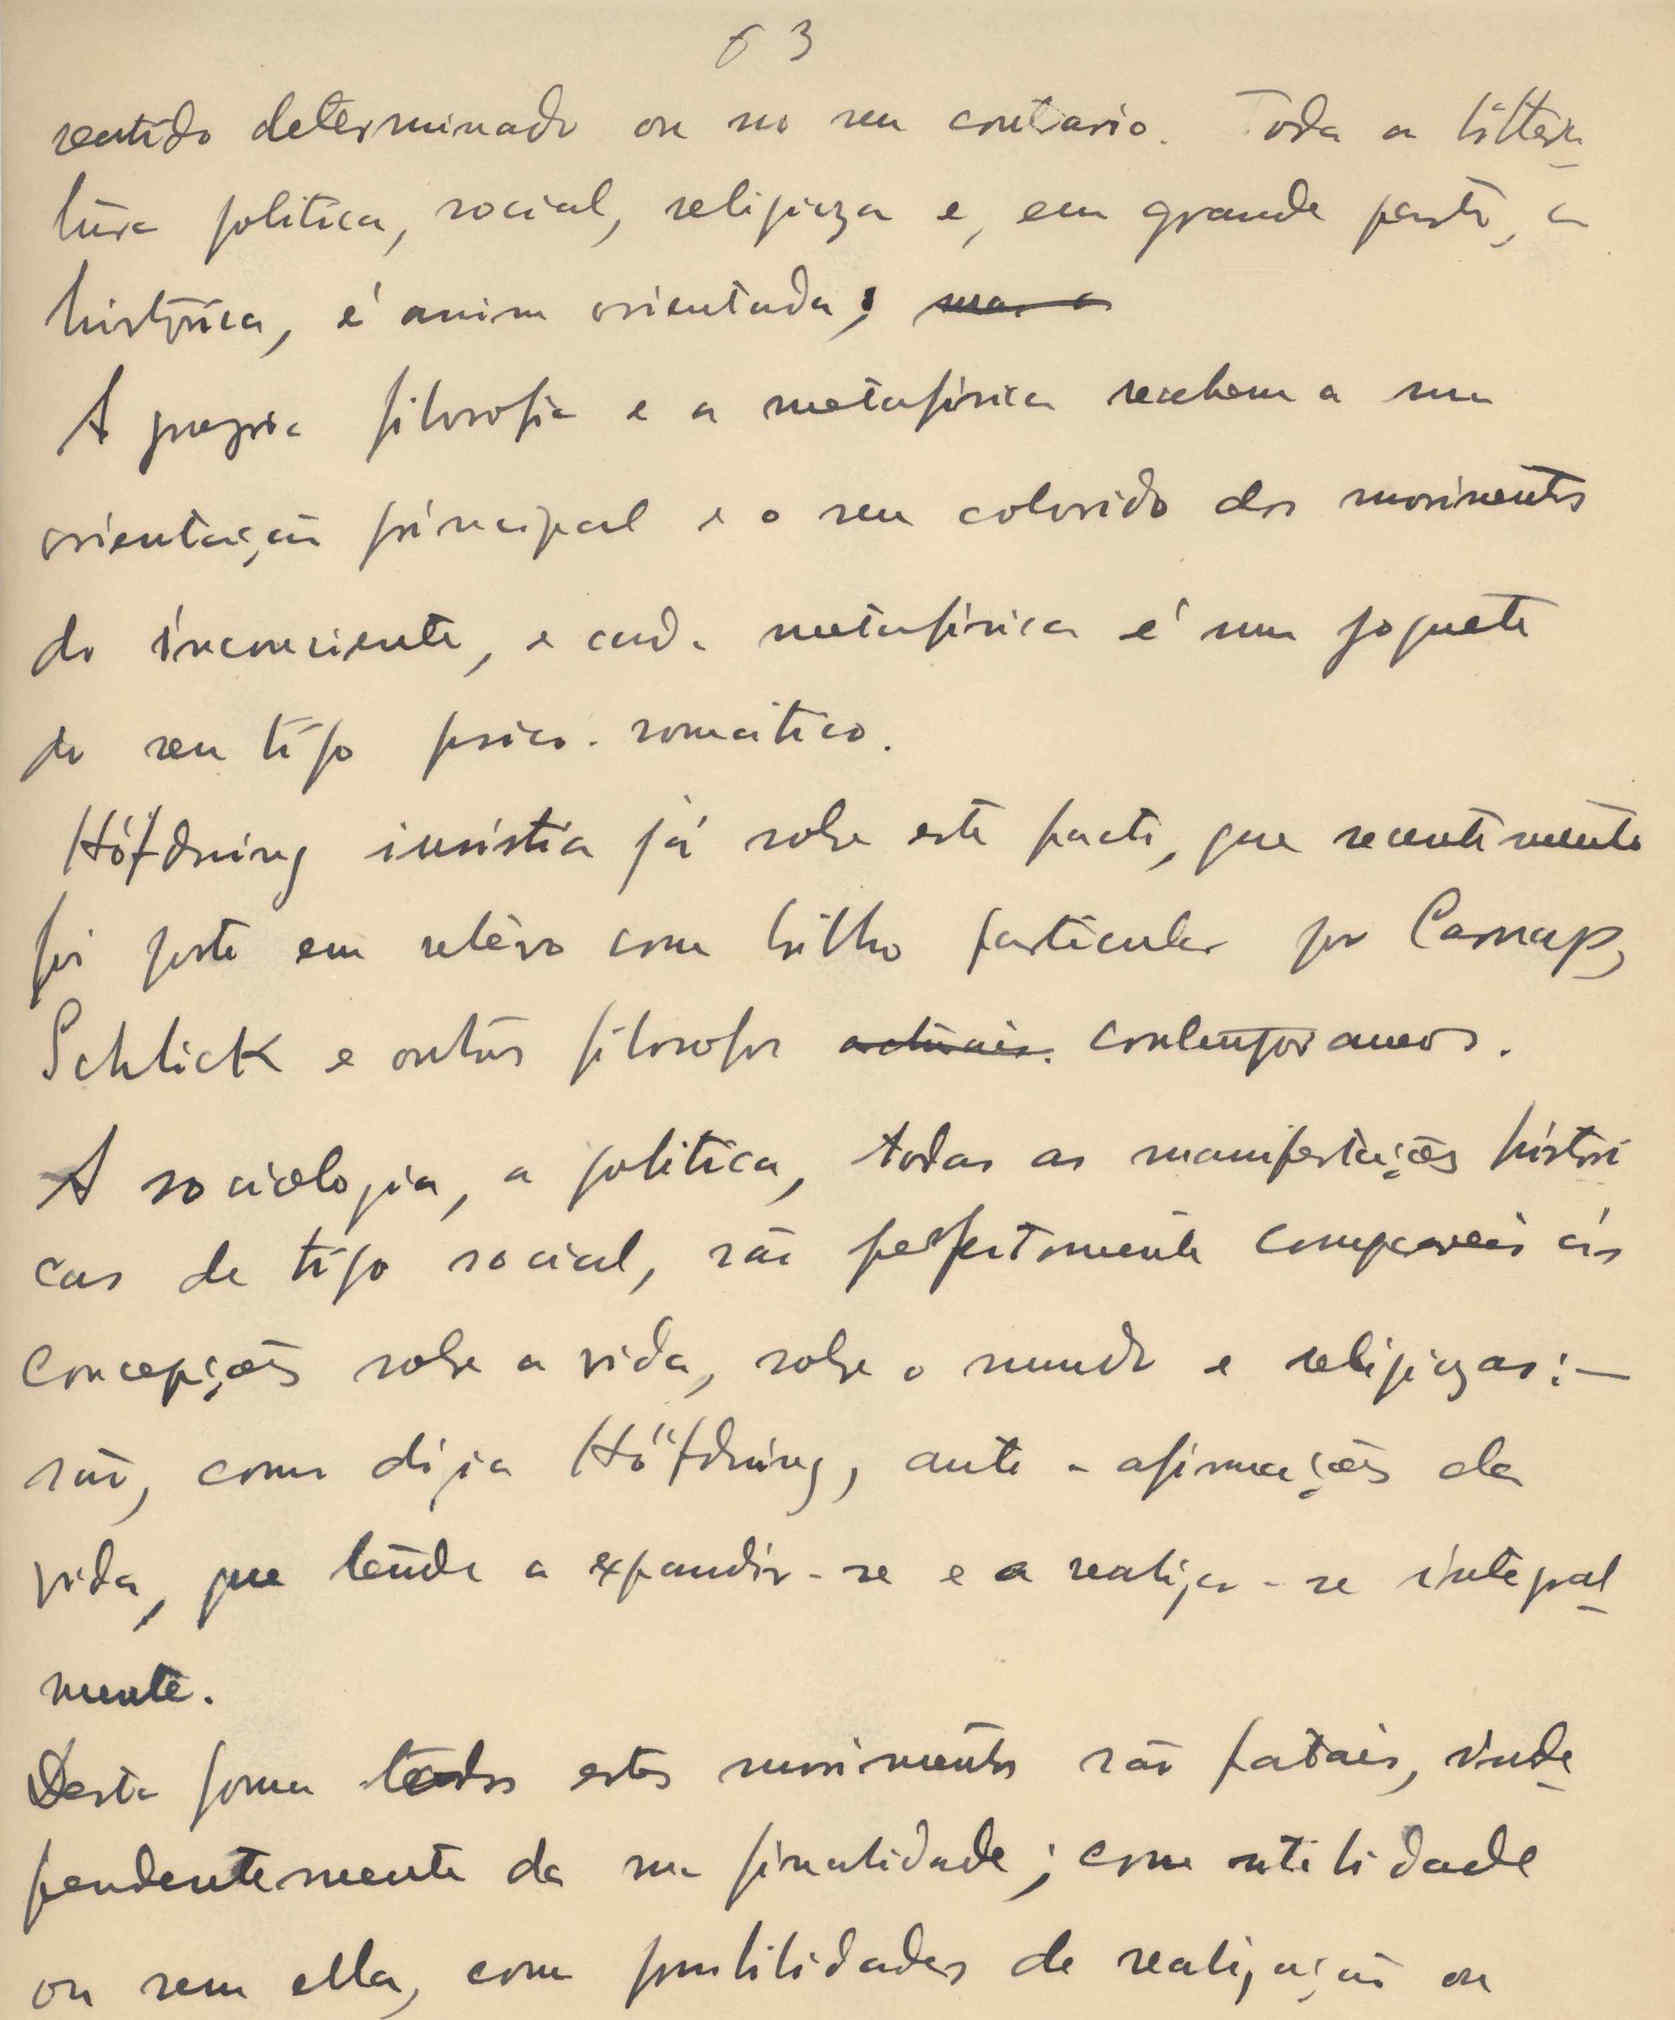 63
sentido determinado ou no seu contrario. Toda a littera-
tura politica, social, religioza e, em grande parte, a
histórica, é assim orientada;
A propria filosofia e a metafísica recebem a sua
orientação principal e o seu colorido dos movimentos
do inconsciente, e cada metafísica é um joguete
do seu tipo psico-somático.
Höfdning insistia já sobre este facto, que recentemente
foi posto em relêvo com brilho particular por Carnap,
Schlick e outros filosofos actuais. contemporaneos.
A sociologia, a politica, todas as manifestações histori
cas de tipo social, são perfeitamente comparaveis ás
concepções sobre a vida, sobre o mundo e religiozas:—
são, como dizia Höfdning, ante-afirmações da
vida, que tende a expandir-se e a realizar-se integral-
mente.
Desta forma todos estes movimentos são fatais, inde-
pendentemente da sua finalidade; com utilidade
ou sem ella, com possibilidades de realização ou